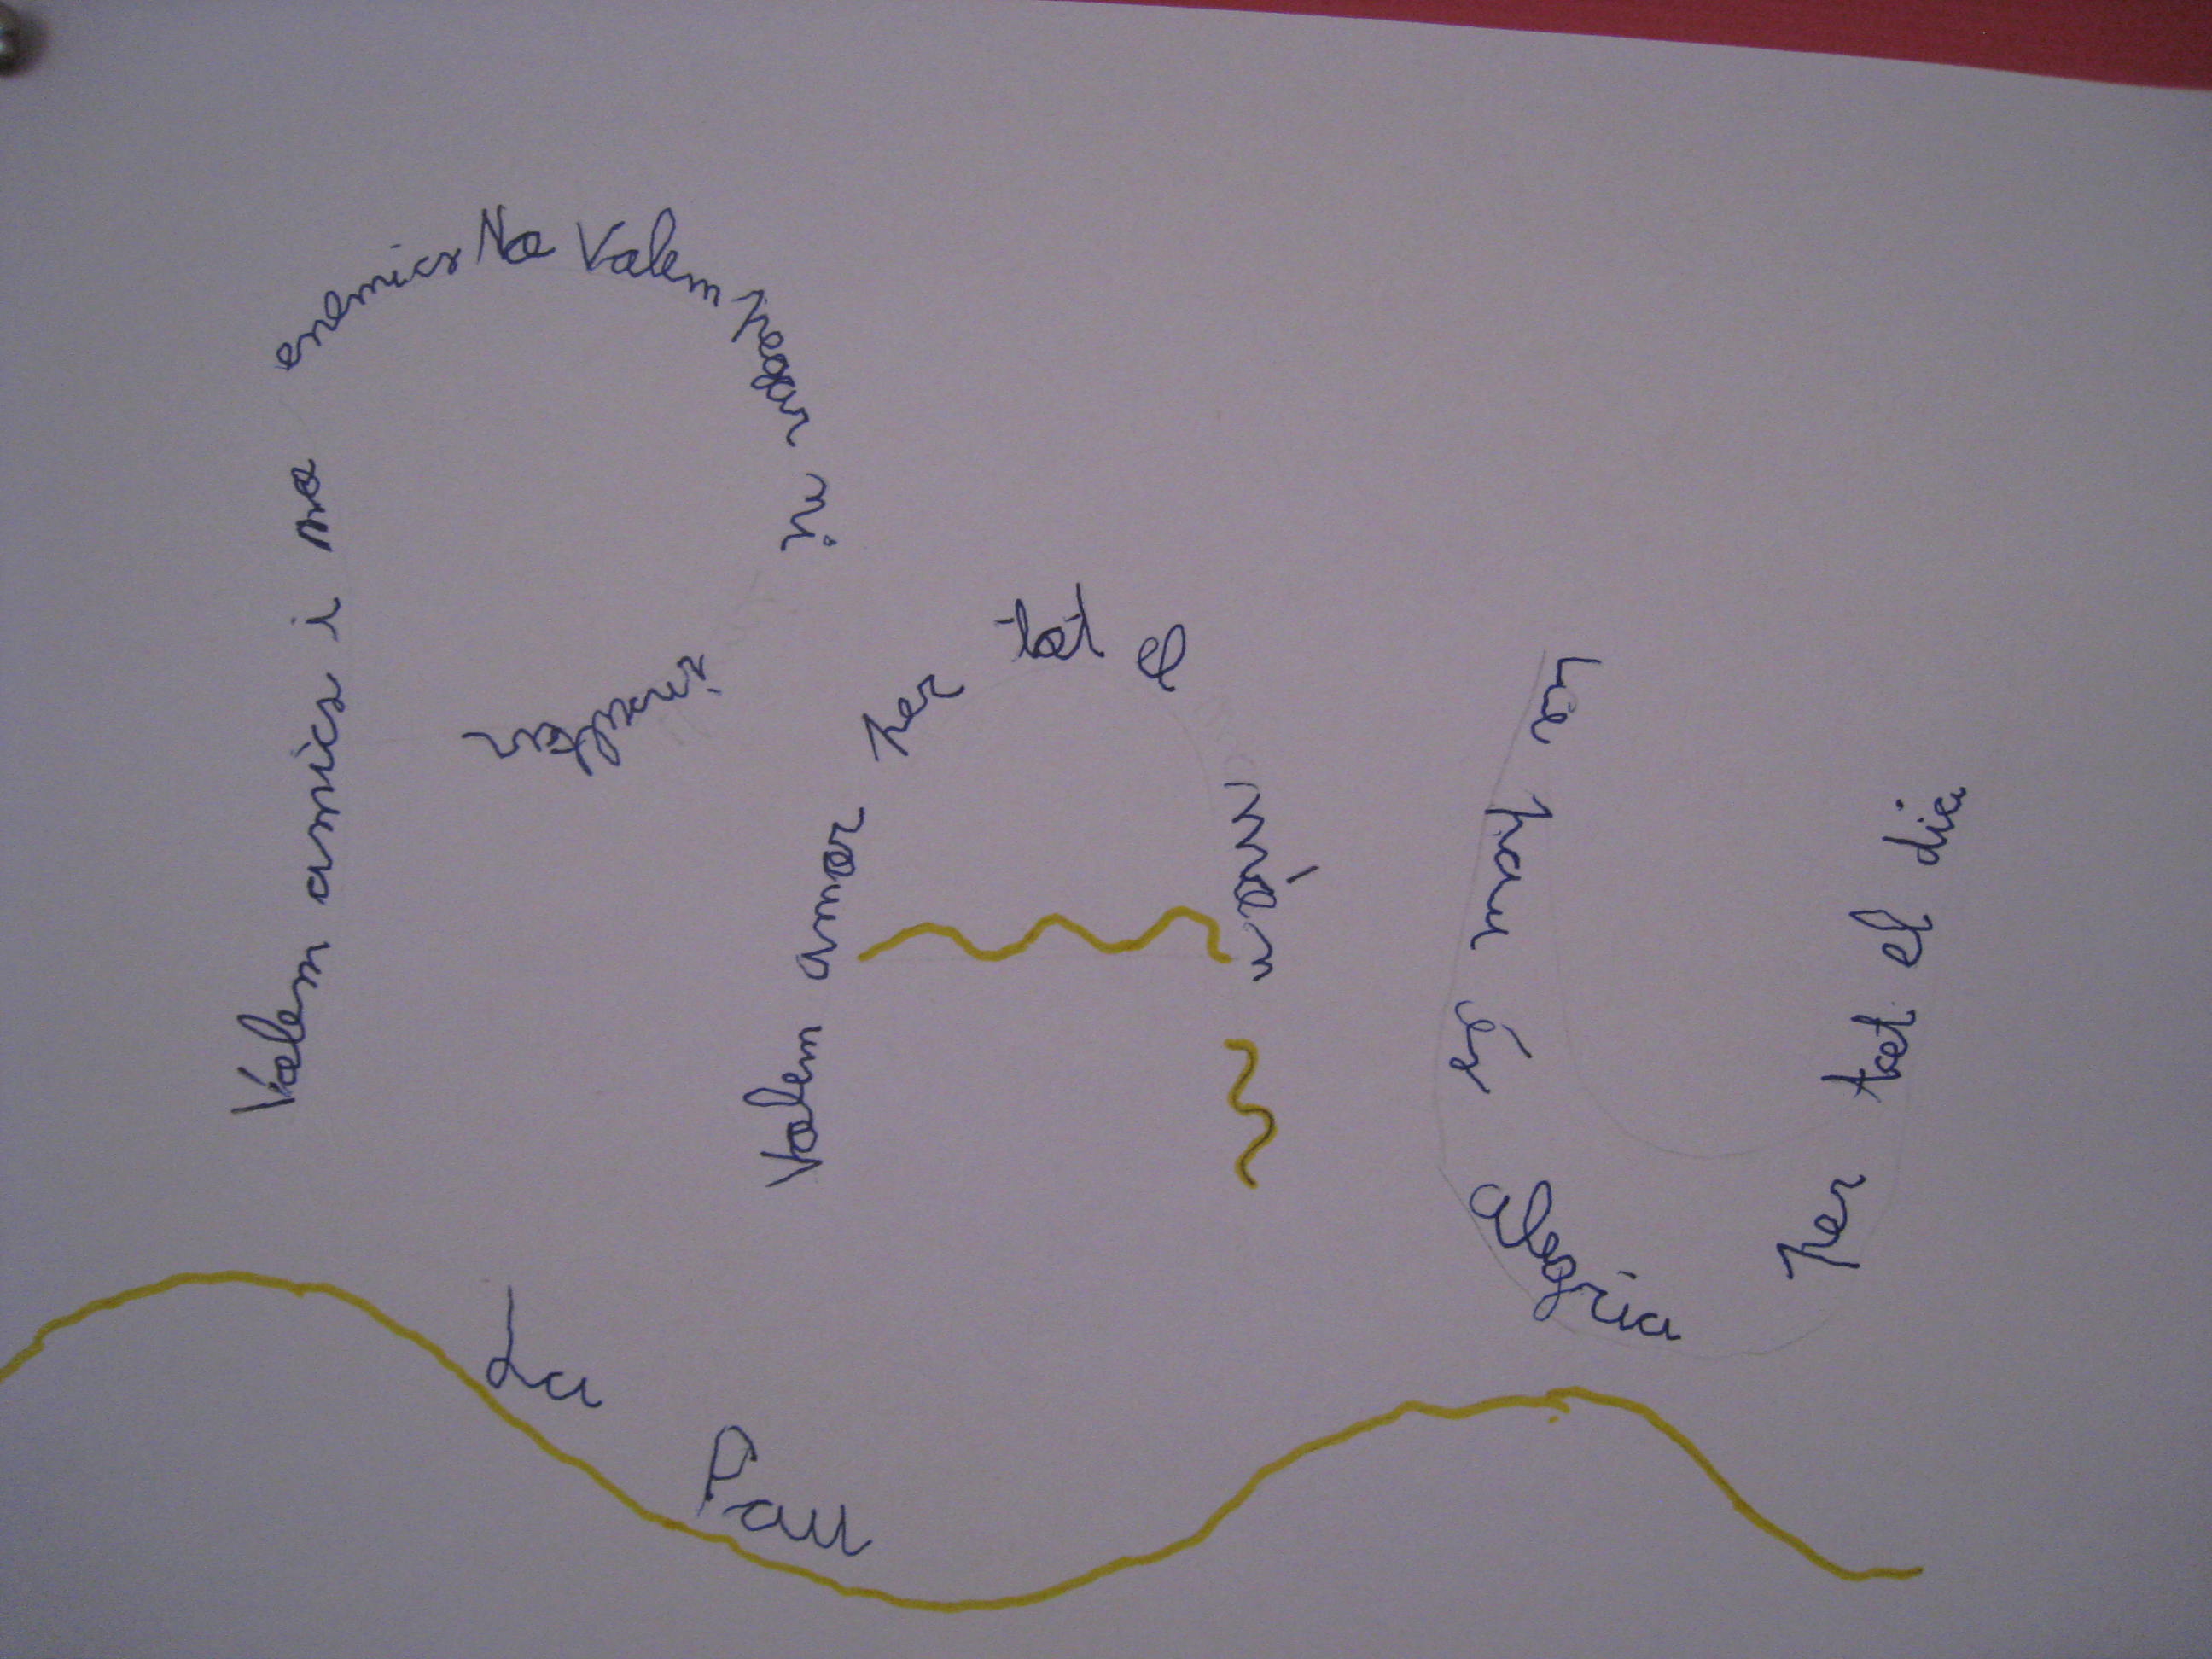 Volem amics i no enemics No Volem pegar ni insultar
Volem amor per tot el món
La pau és alegria per tot el dia
La Pau